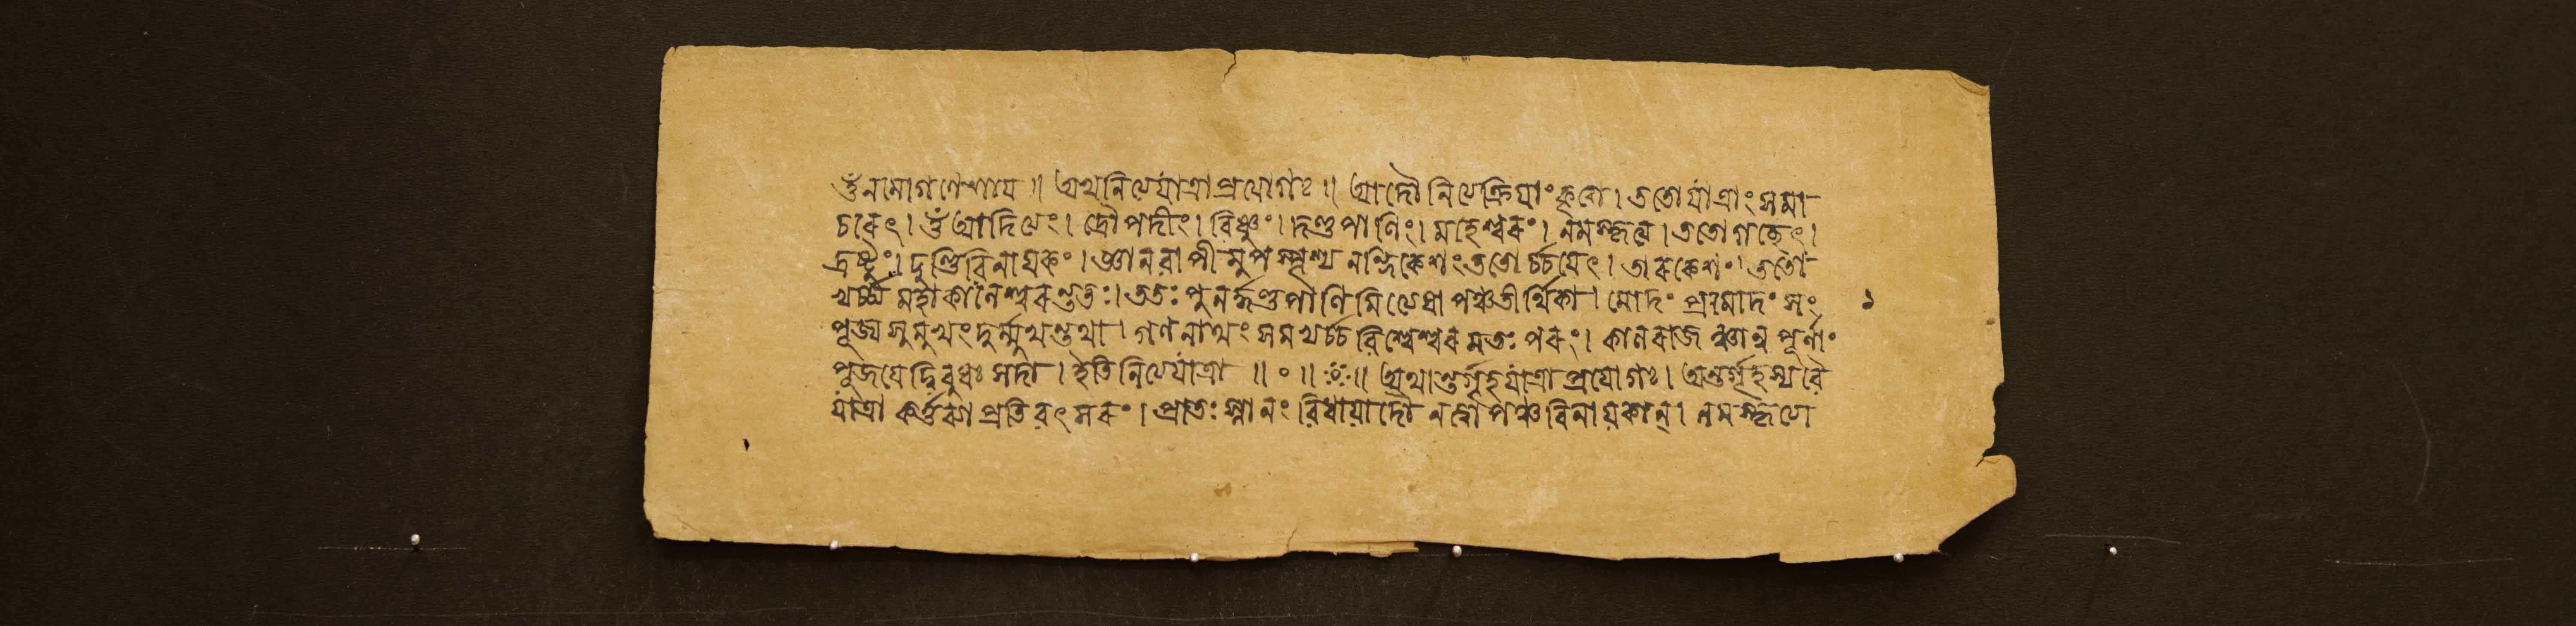 ওঁ নমো গণেশায় ॥ অথ নিত্যেযাত্রাপ্রযোগঃ ॥ আদৌ নিত্যেক্রিযাং কৃত্বা । ততো যাত্রাং সমা
চরেৎ । ওঁ আদিত্যেং । দ্রৌপদীং । বিষ্ণুং । দণ্ডপাণিং । মহেশ্বরং । নমস্কৃত্যে । ততো গচ্ছেৎ ।
দ্রষ্টুং । ঢুণ্ঢিবিনাযকং । জ্ঞানবাপীমুপস্পৃশ্য নন্দিকেশং ততোর্চ্চযেৎ । তারকেশং । ততো
মহাকালেশ্বরন্ততঃ । ততঃ পুনর্দ্দণ্ডপাণিমিত্যেষা পঞ্চতীর্থিকা । মোদং প্রমোদং সং
পূজ্য সুমুখং দুর্ম্মুখন্তথা । গণনাথং বিশ্বেশ্বরমতঃ পরং ।
পূজযেদ্বিবুধঃ সদা । ইতি নিত্যেযাত্রা ॥ ০ ॥ ॥ অথান্তর্গৃহযাত্রাপ্রযোগঃ । অন্তর্গৃহস্য বৈ
যাত্রা কর্ত্তব্যা প্রতিবৎসরং । প্রাতঃস্নানং বিধাযাদৌ নত্বা পঞ্চবিনাযকান্ । নমস্কৃত্যে
১